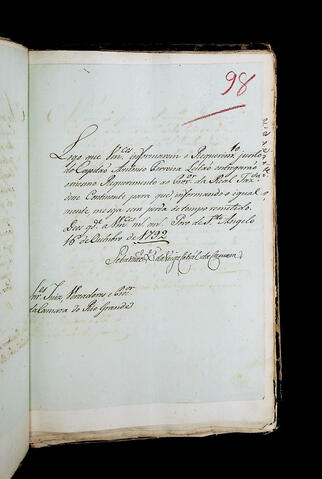 98
Logo que Vm.ces informarem o Requerim.to junto
do Capitão Antonio Ferreira Leitão entregará
o mesmo Requerimento ao Pror. da Real Faz.da
deste Continente para que, informando o igual
mente me seja sem perda de tempo remetido.
Deos g.e a Vm.ces m. an. Povo de S.to Angelo
16 de Outubro de 1792
Sebastião X.er da Veiga Cabral da Camara
Snr.es Juiz, Vereadores e Pror.
da Camara do Rio Grande